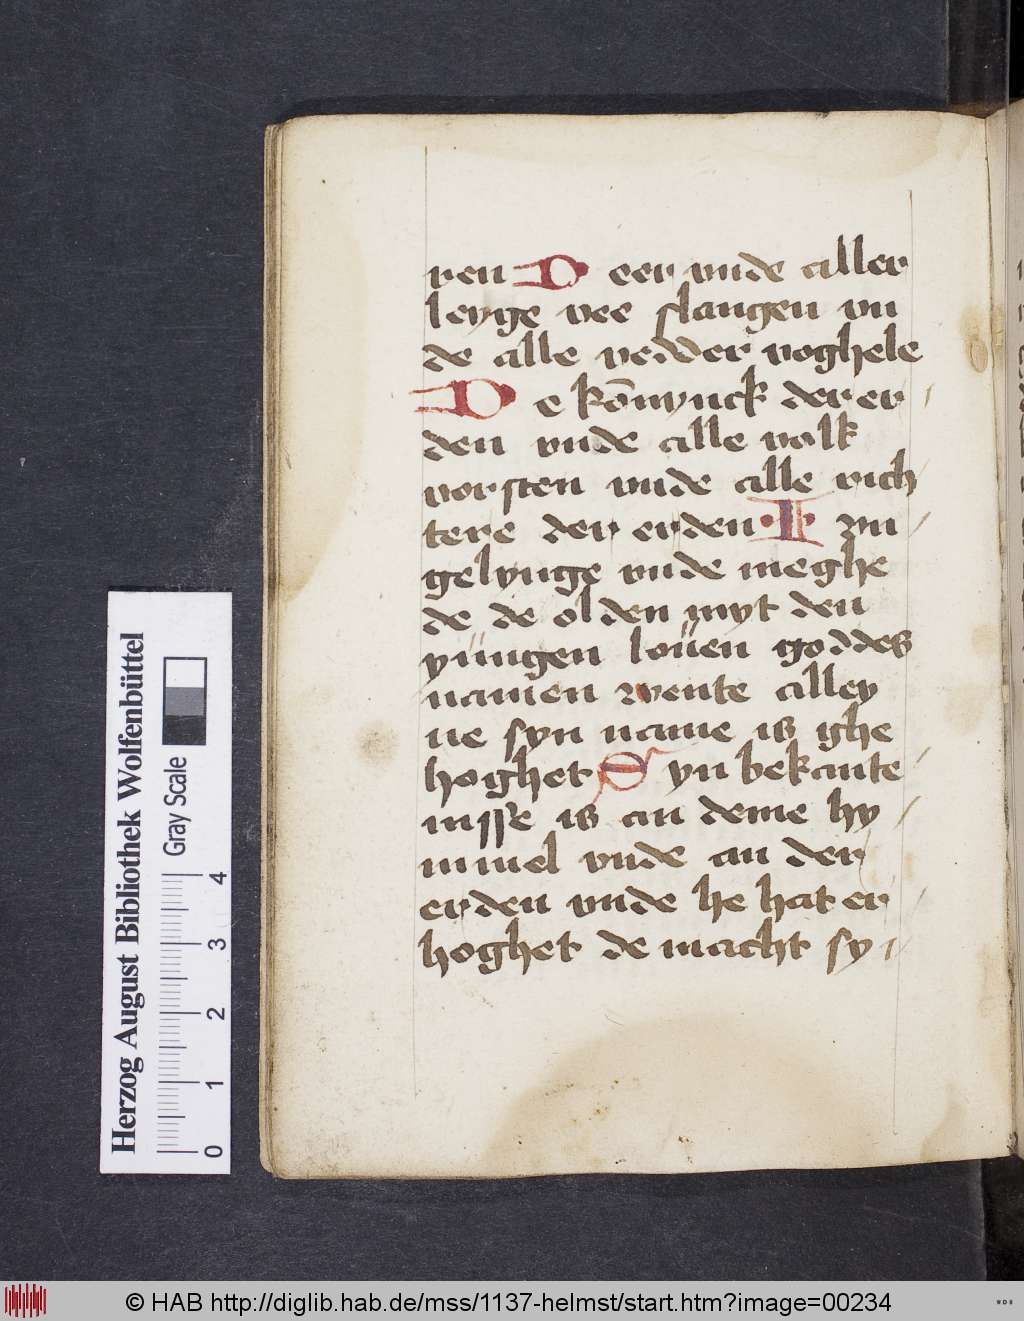 ren Deer vnde aller
leyge vee slangen vn
de alle vedder voghele
De kōnynck der er
den vnde alle volk
vorsten vnde alle rich
tere der erden · I un
gelynge vnde meghe
de de olden myt den
yüngen loüen goddes
namen wente alley
ne syn name is ghe
hoghet Syn bekante
nisse is an deme hy
mmel vnde an der
erden vnde he hat er
hoghet de macht sy
Herzog August Bibliothek Wolfenbüttel
Gray Scale
0 1 2 3 4
© HAB http://diglib.hab.de/mss/1137-helmst/start.htm?image=00234